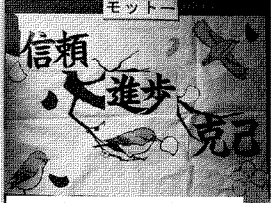 モットー
信頼
進歩
克己